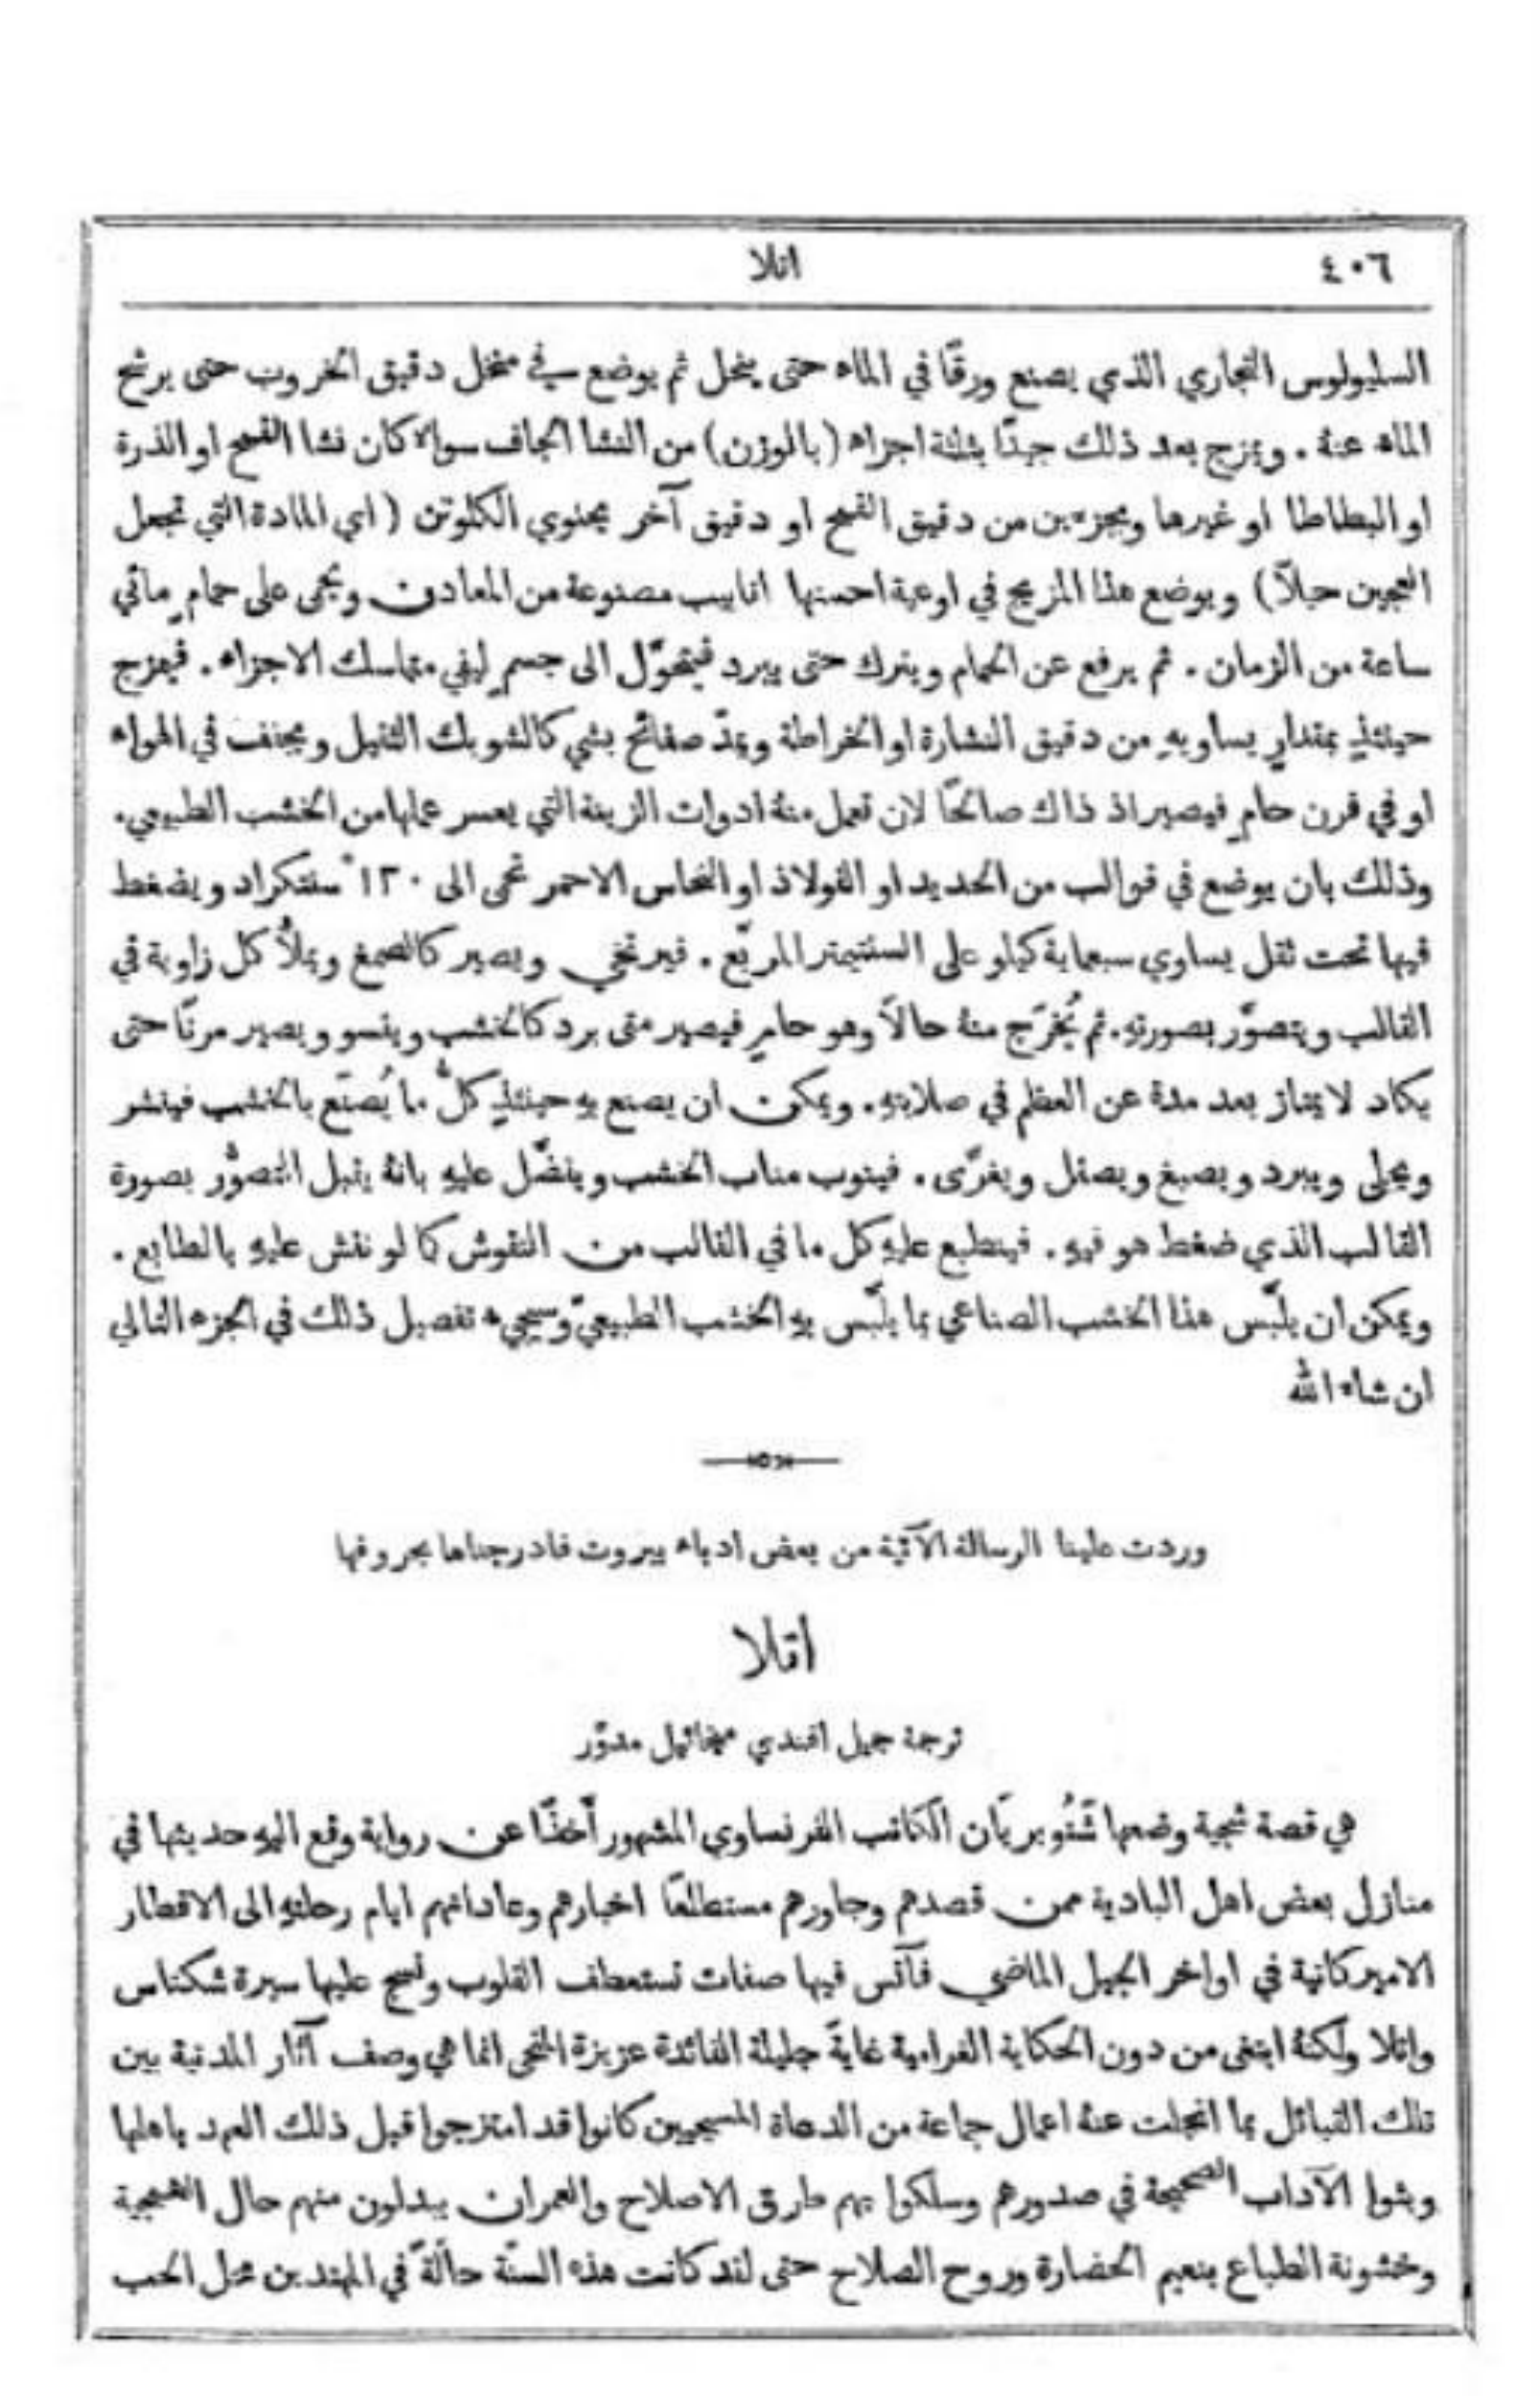 ٤٠٦
اتلا
السليولوس التجاري الذي يصنع ورقًا في الماء حتى ينحل ثم يوضع في منخل دقيق الخروب حتى يرشح
الماء عنهُ . ويمزج بعد ذلك جيدًا بثلثة اجزاء (بالوزن) من النشا الجاف سوالا كان نشا القمح او الذرة
او البطاطا او غيرها وبجزءين من دقيق القمح او دقيق آخر يحتوي الكلوتن ( اي المادة التي تجعل
العجين حبلاً) ويوضع هذا المزيج في اوعية احسنها انابيب مصنوعة من المعادن ويحمى على حمامٍ مائي
ساعة من الزمان . ثم يرفع عن الحمام ويترك حتى يبرد فيتحوَّل الى جسمٍ ليفي متماسك الاجزاء . فيمزج
حينئذٍ بمقدارٍ يساويهِ من دقيق النشارة او الخراطة ويمدّ صفائح بشي كالشوبك الثقيل ويجفف في الهواء
او في فرن حامٍ فيصير اذ ذاك صالحًا لان تعمل منهُ ادوات الزينة التي يعسر عملها من الخشب الطبيعي.
وذلك بان يوضع في قوالب من الحديد او الفولاذ او النحاس الاحمر تحمى الى ١٢٠° سنتكراد ويضغط
فيها تحت ثقل يساوي سبعماية كيلو على السنتيمتر المربّع . فيرتخي ويصير كالصمغ ويملأُ كل زاوية في
القالب ويتصوَّر بصورتهِ. ثم يُخرَج منهُ حالاً وهو حامٍ فيصير متى برد كالخشب ويقسو ويصير مرنًا حتى
يكاد لا يمتاز بعد مدة عن العظم في صلابتهِ. ويمكن ان يصنع بهِ حينئذٍ كلُّ ما يُصنَع بالخشب فينشر
ويجلى ويبرد ويصبغ ويصقل ويغرَّى . فينوب مناب الخشب ويفضَّل عليهِ بانهُ يقبل التصوُّر بصورة
القالب الذي ضغط هو فيهِ . فينطبع عليهِ كل ما في القالب من النقوش كما لو نقش عليهِ بالطابع .
ويمكن ان يلبَّس هذا الخشب الصناعي بما يلبَّس بهِ الخشب الطبيعيّ وسيجيء تفصيل ذلك في الجزء التالي
ان شاء الله
وردت علينا الرسالة الآتية من بعض ادباء بيروت فادرجناها بحروفها
اتلا
ترجمة جميل افندي ميخائيل مدوَّر
هي قصة شجية وضعها شَتُوبريَان الكاتب الفرنساوي المشهور أَخذًا عن رواية وقع اليهِ حديثها في
منازل بعض اهل البادية ممن قصدهم وجاورهم مستطلعًا اخبارهم وعاداتهم ايام رحلتهِ الى الاقطار
الاميركانية في اواخر الجيل الماضي فآنس فيها صفات تستعطف القلوب ونسج عليها سيرة شكتاس
واتلا ولكنهُ ابتغى من دون الحكاية الغرامية غايةً جليلة الفائدة عزيزة المنحى انما هي وصف آثار المدنية بين
تلك القبائل بما انجلت عنهُ اعمال جماعة من الدعاة المسيحيين كانوا قد امتزجوا قبل ذلك العهد باهلها
وبثوا الآداب الصحيحة في صدورهم وسلكوا بهم طرق الاصلاح والعمران يبدلون منهم حال الهمجية
وخشونة الطباع بنعيم الحضارة وروح الصلاح حتى لقد كانت هذه السنَّة حالَّةً في المهتدين محل الحب